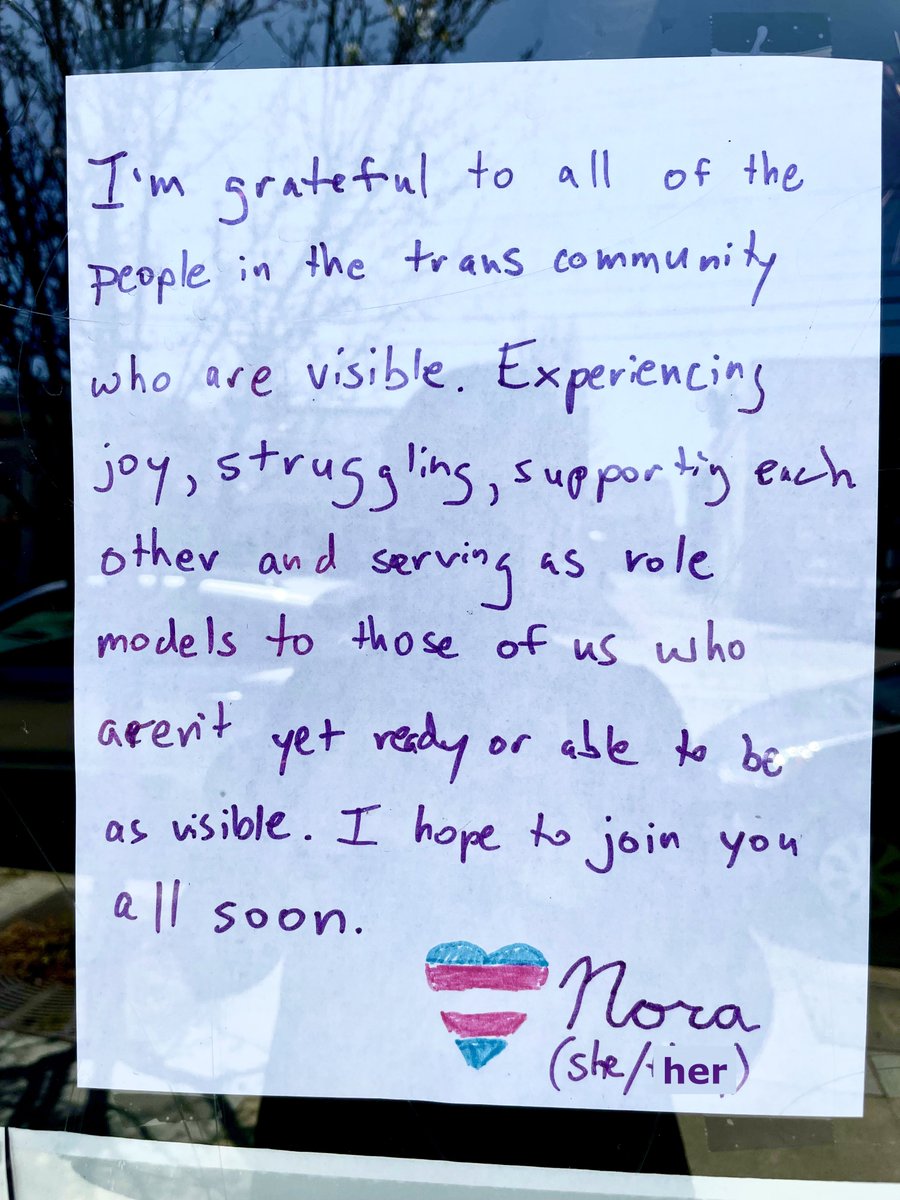 I'm grateful to all of the
people in the trans community
who are visible. Experiencing
joy, struggling, supportig each
other and serving as role
models to those of us who
aren't yet ready or able to be
as visible. I hope to join you
all soon.
Nora
(she/her)